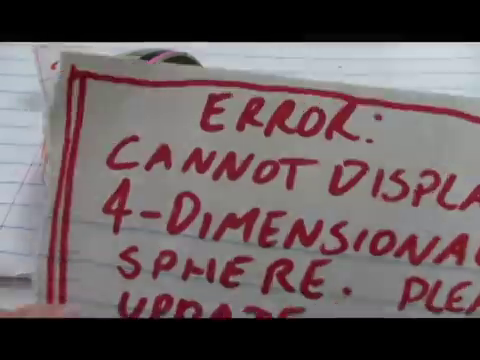 ERROR:
CANNOT DISPLA
4-DIMENSIONA
SPHERE. PLEA
UPDATE